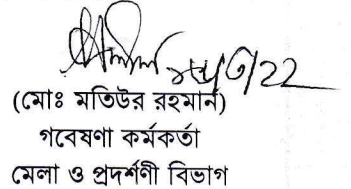 (মোঃ মতিউর রহমান)
গবেষণা কর্মকর্তা
মেলা ও প্রদর্শণী বিভাগ